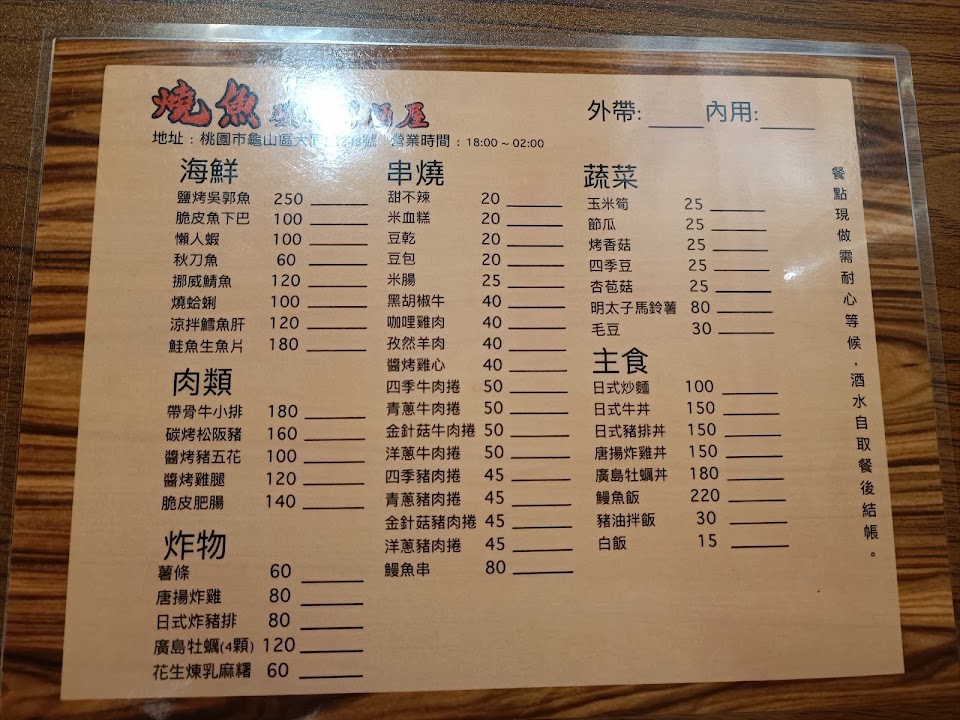 燒魚 酒屋
外帶: 內用:
地址：桃園市龜山區大 號 營業時間：18:00 ~ 02:00
海鮮
鹽烤吳郭魚 250
脆皮魚下巴 100
懶人蝦 100
秋刀魚 60
挪威鯖魚 120
燒蛤蜊 100
涼拌鱈魚肝 120
鮭魚生魚片 180
肉類
帶骨牛小排 180
碳烤松阪豬 160
醬烤豬五花 100
醬烤雞腿 120
脆皮肥腸 140
炸物
薯條 60
唐揚炸雞 80
日式炸豬排 80
廣島牡蠣(4顆) 120
花生煉乳麻糬 60
串燒
甜不辣 20
米血糕 20
豆乾 20
豆包 20
米腸 25
黑胡椒牛 40
咖哩雞肉 40
孜然羊肉 40
醬烤雞心 40
四季牛肉捲 50
青蔥牛肉捲 50
金針菇牛肉捲 50
洋蔥牛肉捲 50
四季豬肉捲 45
青蔥豬肉捲 45
金針菇豬肉捲 45
洋蔥豬肉捲 45
鰻魚串 80
蔬菜
玉米筍 25
節瓜 25
烤香菇 25
四季豆 25
杏苞菇 25
明太子馬鈴薯 80
毛豆 30
主食
日式炒麵 100
日式牛丼 150
日式豬排丼 150
唐揚炸雞丼 150
廣島牡蠣丼 180
鰻魚飯 220
豬油拌飯 30
白飯 15
餐點現做需耐心等候，酒水自取餐後結帳。